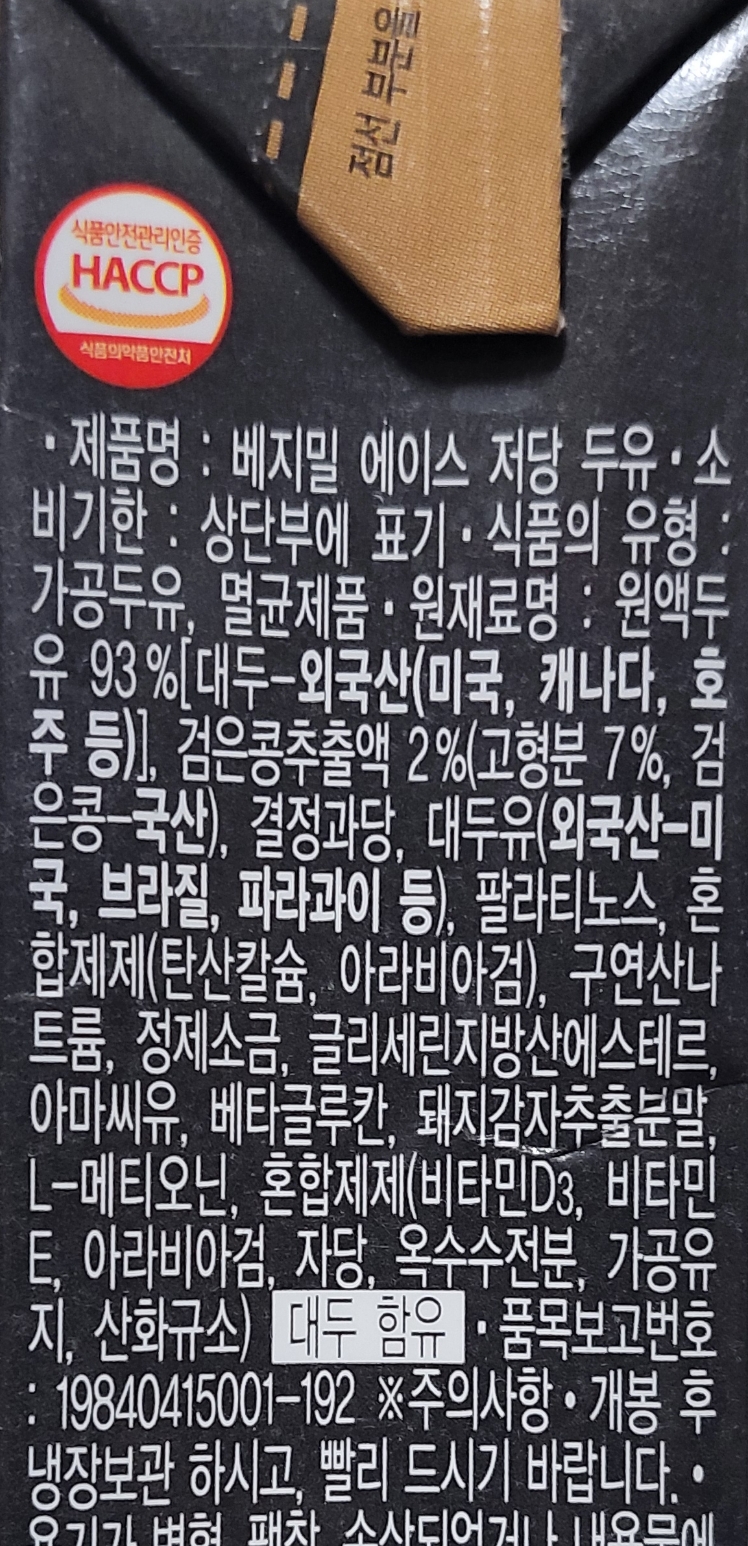 점선 부분을
식품안전관리인증
HACCP
식품의약품안전처
• 제품명 : 베지밀 에이스 저당 두유 • 소
비기한 : 상단부에 표기 • 식품의 유형 :
가공두유, 멸균제품 • 원재료명 : 원액두
유 93%[대두-외국산(미국, 캐나다, 호
주 등)], 검은콩추출액 2%(고형분 7%, 검
은콩-국산), 결정과당, 대두유(외국산-미
국, 브라질, 파라과이 등), 팔라티노스, 혼
합제제(탄산칼슘, 아라비아검), 구연산나
트륨, 정제소금, 글리세린지방산에스테르,
아마씨유, 베타글루칸, 돼지감자추출분말,
L-메티오닌, 혼합제제(비타민D3, 비타민
E, 아라비아검, 자당, 옥수수전분, 가공유
지, 산화규소) 대두 함유 • 품목보고번호
: 19840415001-192 ※주의사항 • 개봉 후
냉장보관 하시고, 빨리 드시기 바랍니다. •
용기가 변형, 팽창, 손상되었거나 내용물에